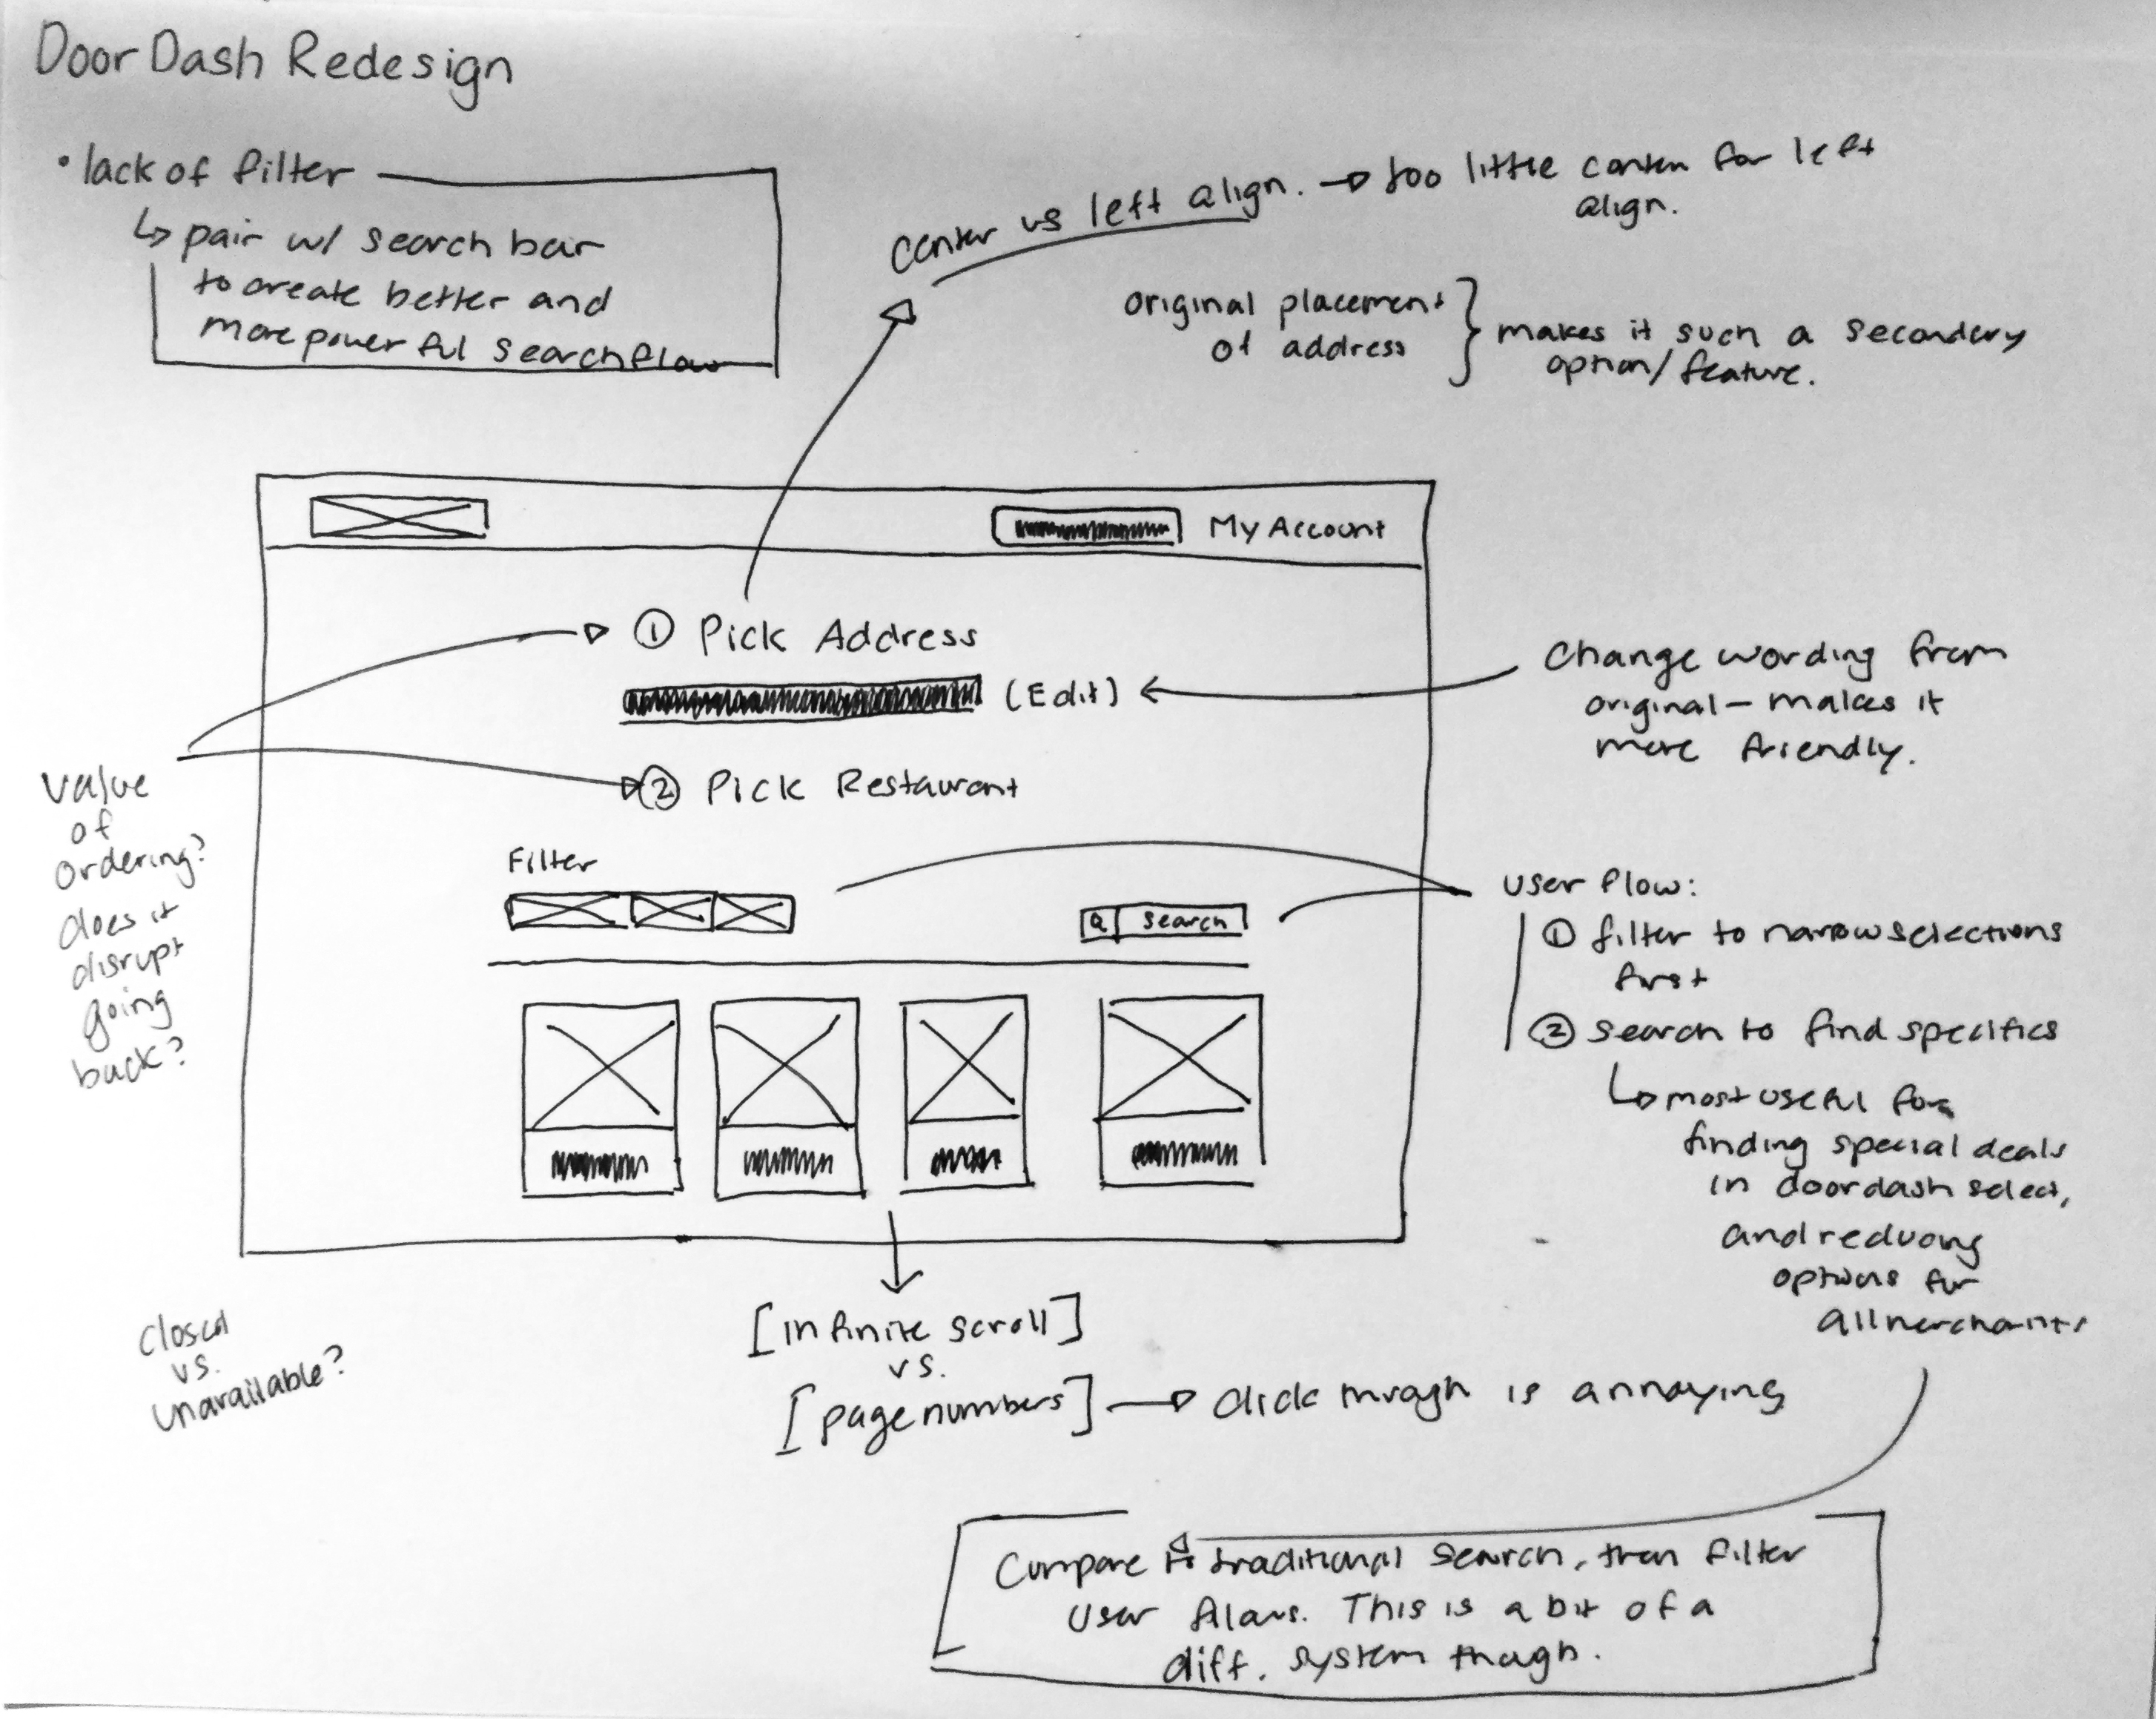 Door Dash Redesign
• lack of filter
↳ pair w/ search bar
to create better and
more powerful search flow
center vs left align. → too little conten for left
align.
original placement
of address
makes it such a secondary
option/feature.
My Account
① Pick Address
(Edit)
② Pick Restaurant
Change wording from
original – makes it
more friendly.
value
of
ordering?
does it
disrupt
going
back?
Filter
Search
user flow:
① filter to narrow selections
first
② search to find specifics
↳ most useful for
finding special deals
in doordash select,
and reducing
options for
all merchants
[infinite scroll]
vs.
[page numbers] → click through is annoying
closed
vs.
unavailable?
Compare to traditional search, then filter
user flows. This is a bit of a
diff. system though.